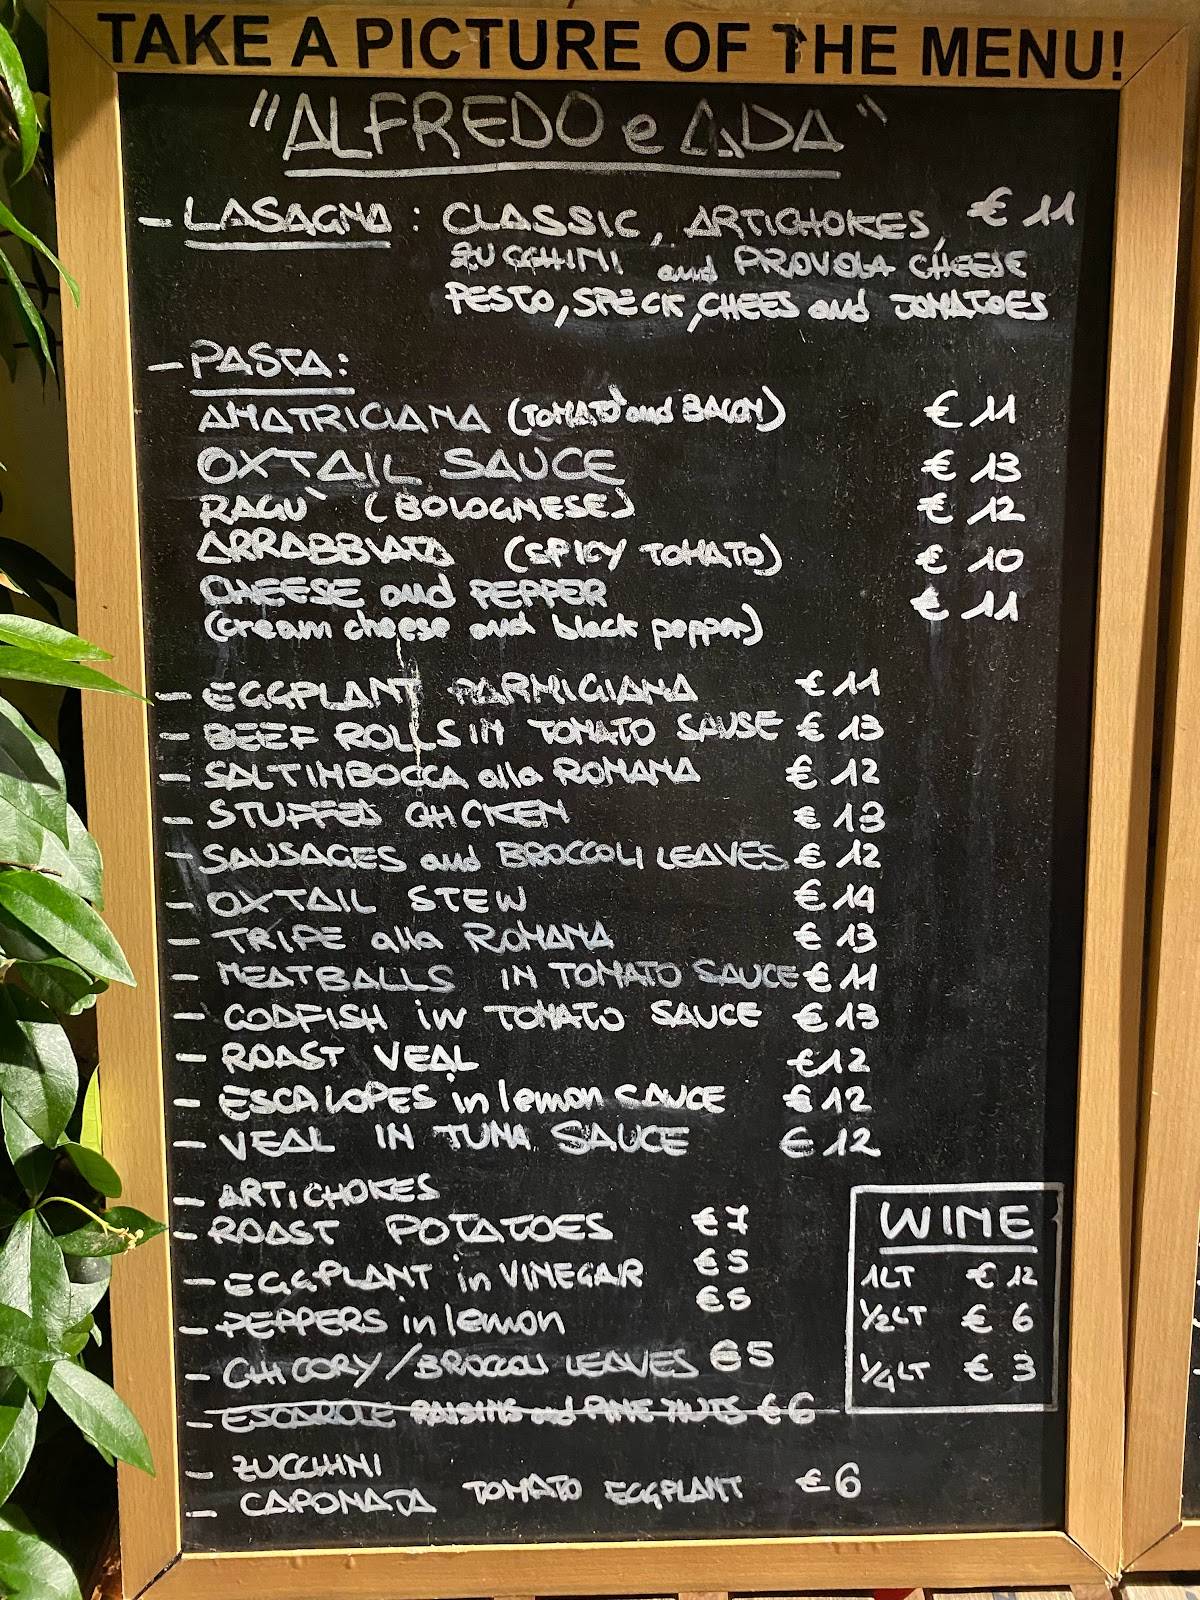 TAKE A PICTURE OF THE MENU!
"ALFREDO e ADA"
- LASAGNA : CLASSIC, ARTICHOKES, € 11
ZUCCHINI and PROVOLA CHEESE
PESTO, SPECK, CHEES and TOMATOES
- PASTA:
AMATRICIANA (TOMATO and BACON) € 11
OXTAIL SAUCE € 13
RAGU' (BOLOGNESE) € 12
ARRABBIATA (SPICY TOMATO) € 10
CHEESE and PEPPER € 11
(cream cheese and black pepper)
- EGGPLANT PARMIGIANA € 11
- BEEF ROLLS IN TOMATO SAUSE € 13
- SALTIMBOCCA alla ROMANA € 12
- STUFFED CHCKEN € 13
- SAUSAGES and BROCCOLI LEAVES € 12
- OXTAIL STEW € 14
- TRIPE alla ROMANA € 13
- MEATBALLS IN TOMATO SAUCE € 11
- CODFISH in TOMATO SAUCE € 13
- ROAST VEAL €12
- ESCALOPES in lemon SAUCE € 12
- VEAL IN TUNA SAUCE € 12
- ARTICHOKES
- ROAST POTATOES € 7
- EGGPLANT in VINEGAR € 5
- PEPPERS in lemon € 5
- CHICORY/BROCCOLI LEAVES €5
- ESCAROLE RAISINS and PINE NUTS € 6
- ZUCCHINI
- CAPONATA TOMATO EGGPLANT € 6
WINE
1LT € 12
1/2LT € 6
1/4LT € 3